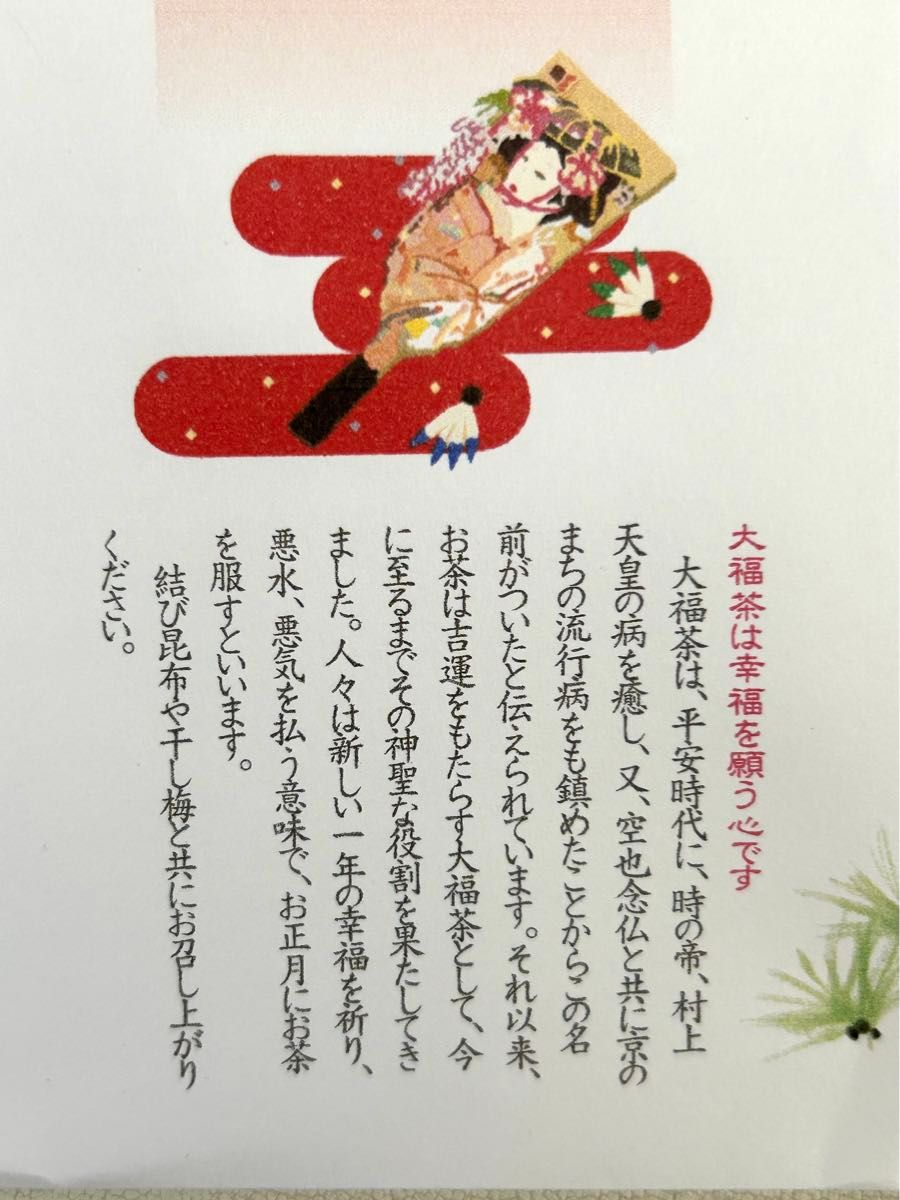 大福茶は幸福を願う心です
大福茶は、平安時代に、時の帝、村上
天皇の病を癒し、又、空也念仏と共に京の
まちの流行病をも鎮めたことからこの名
前がついたと伝えられています。それ以来、
お茶は吉運をもたらす大福茶として、今
に至るまでその神聖な役割を果たしてき
ました。人々は新しい一年の幸福を祈り、
悪水、悪気を払う意味で、お正月にお茶
を服すといいます。
結び昆布や干し梅と共にお召し上がり
ください。